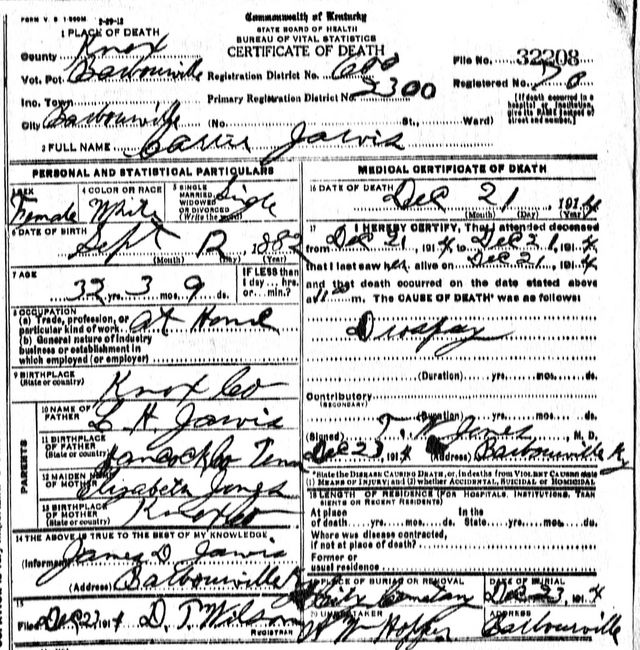 FORM V. S. 1-500M 9-29-13
Commonwealth of Kentucky
STATE BOARD OF HEALTH
BUREAU OF VITAL STATISTICS
CERTIFICATE OF DEATH
1 PLACE OF DEATH
County Knox
File No. 32208
Vot. Pct Barbourville Registration District No.
Registered No. 70
Inc. Town Primary Registration District No. 2300
[If death occurred in a hospital or institution, give its NAME instead of street and number.]
City Barbourville (No. St., Ward)
2 FULL NAME Carrie Jarvis
PERSONAL AND STATISTICAL PARTICULARS
3 SEX Female
4 COLOR OR RACE White
5 SINGLE MARRIED, WIDOWED OR DIVORCED (Write the word) Single
6 DATE OF BIRTH Sept 12, 1882
(Month) (Day) (Year)
7 AGE 32 yrs. 3 mos. 9 ds.
IF LESS than 1 day... hrs. or... min.?
8 OCCUPATION
(a) Trade, profession, or particular kind of work At Home
(b) General nature of industry business or establishment in which employed (or employer)
9 BIRTHPLACE (State or country) Knox Co
PARENTS
10 NAME OF FATHER L H Jarvis
11 BIRTHPLACE OF FATHER (State or country) Hancock Co Tenn
12 MAIDEN NAME OF MOTHER Elizabeth Jones
13 BIRTHPLACE OF MOTHER (State or country) Knox Co
14 THE ABOVE IS TRUE TO THE BEST OF MY KNOWLEDGE
(Informant) James D Jarvis
(Address) Barbourville Ky
15
Filed Dec 23 1914 D. T. Wilson
REGISTRAR
MEDICAL CERTIFICATE OF DEATH
16 DATE OF DEATH Dec 21, 1914
(Month) (Day) (Year)
17 I HEREBY CERTIFY, That I attended deceased
from Dec 21, 1914 to Dec 21, 1914
that I last saw her alive on Dec 21, 1914
and that death occurred on the date stated above
at 11 m. The CAUSE OF DEATH* was as follows:
Dropsy
(Duration) yrs. mos. ds.
Contributory
(SECONDARY)
(Duration) yrs. mos. ds.
(Signed) T. W. Jones, M. D.
Dec 23, 1914 (Address) Barbourville Ky
*State the DISEASE CAUSING DEATH, or, in deaths from VIOLENT CAUSES state (1) MEANS OF INJURY; and (2) whether ACCIDENTAL, SUICIDAL or HOMICIDAL
18 LENGTH OF RESIDENCE (FOR HOSPITALS, INSTITUTIONS, TRANSIENTS OR RECENT RESIDENTS)
At place of death yrs. mos. ds. In the State yrs. mos. ds.
Where was disease contracted, if not at place of death?
Former or usual residence
19 PLACE OF BURIAL OR REMOVAL City Cemetery
DATE OF BURIAL Dec 23, 1914
20 UNDERTAKER Hopper
ADDRESS Barbourville